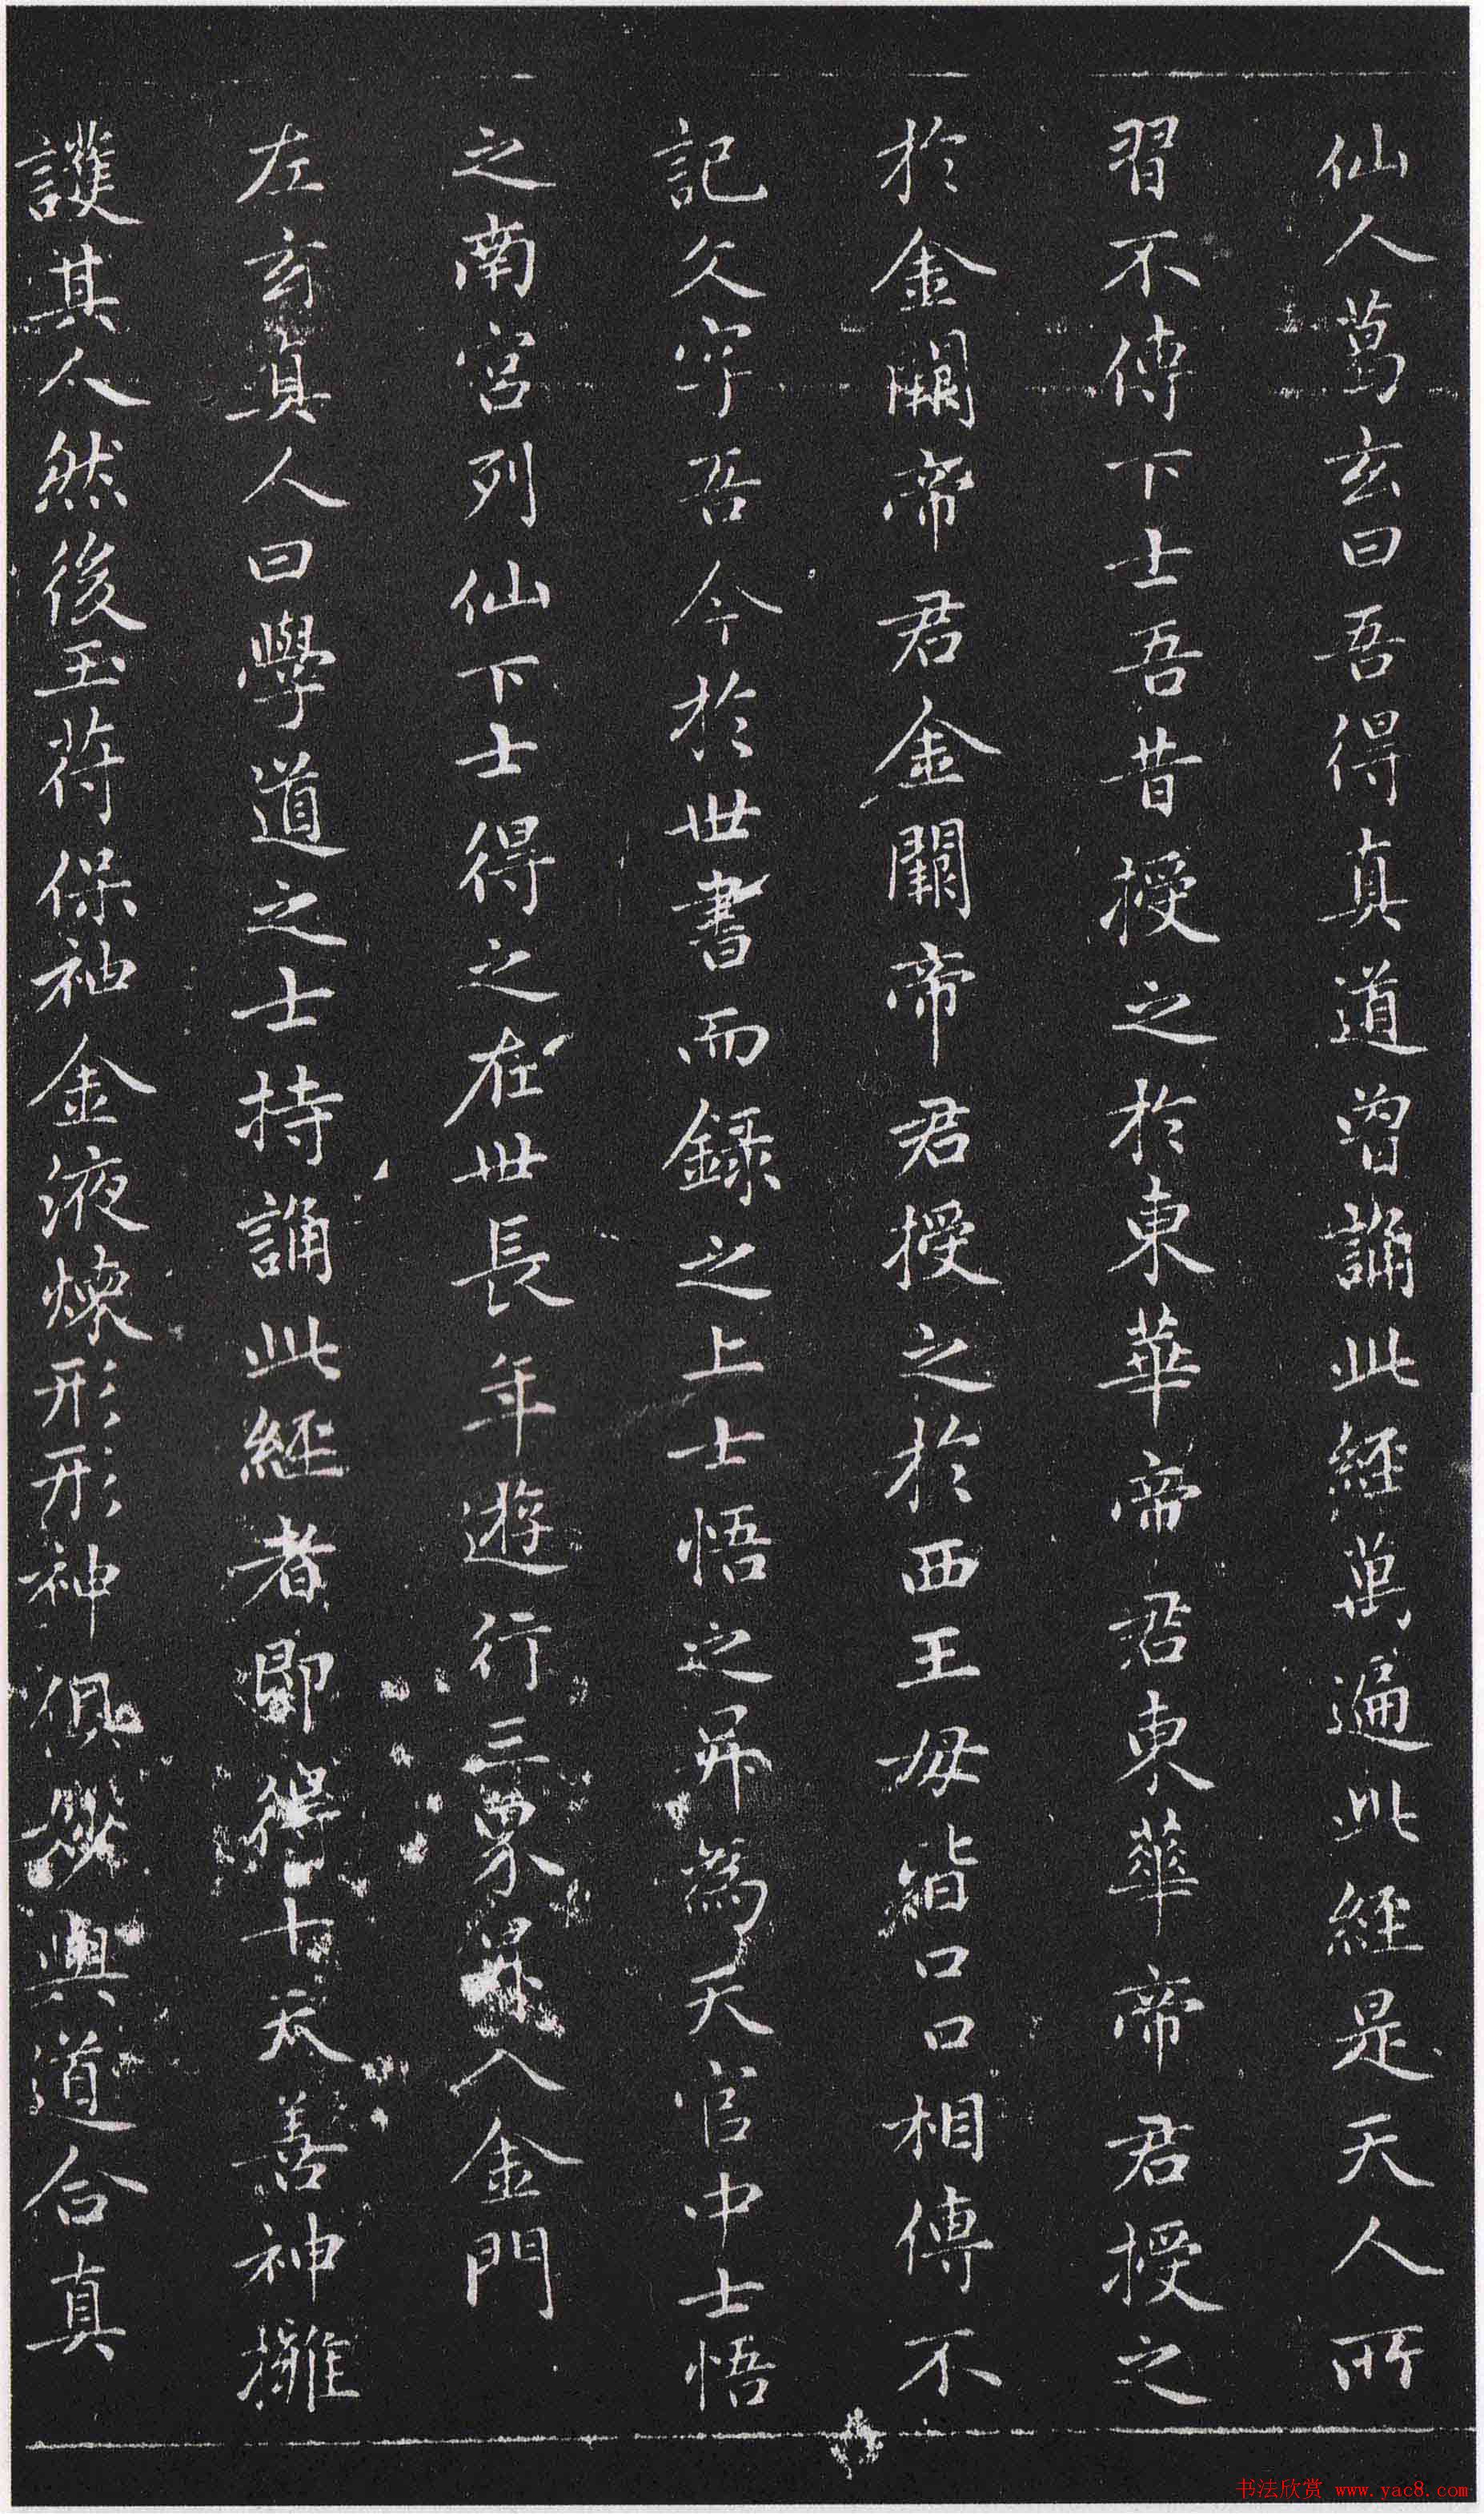 仙人葛玄曰吾得真道曾誦此經萬遍此經是天人所
習不傳下士吾昔授之於東華帝君東華帝君授之
於金闕帝君金闕帝君授之於西王母皆口口相傳不
記文字吾今於世書而錄之上士悟之昇為天官中士悟
之南宮列仙下士得之在世長年遊行三界昇入金門
左玄真人曰學道之士持誦此經者即得十天善神擁
護其人然後玉苻保神金液煉形形神俱妙與道合真
书法欣赏 www.yac8.com